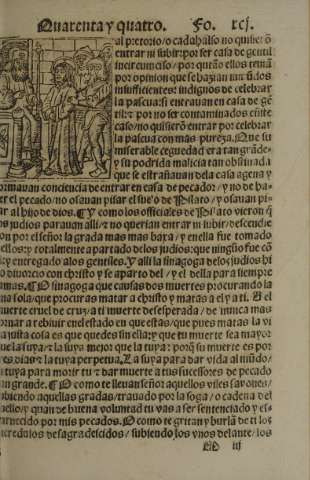 Quarenta y quatro. Fo. xcj.
al pretorio/o cadahalso no quisierõ
entrar ni subir: por ser casa de gentil
incircunciso/por quãto ellos
por opinion que se hazian
insuficientes: indignos de celebrar
la pascua: si entrauan en casa de gẽ
til: por no ser contaminados enste
caso/no quisierõ entrar por celebrar
la pascua con mas pureza. Que su
miserable ceguedad era tan grãde/
y su podrida malicia tan obstinada
que se estrañauan dela casa agena y
formauan conciencia de entrar en casa de pecador/y no de ha-
er el pecado/no osauan pisar el suelo de Pilato/y osauan pi-
ar al hijo de dios. Y como los officiales de Pilato vieron q̃
os judios parauan alli/z no querian entrar ni subir/descendie
on por el señor la grada mas mas baxa/y en ella fue tomado
ellos: y totalmente apartado de los judios: que ninguno fue cõ
y entregado alos gentiles. Y alli la sinagoga delos judios hi
o diuorcio con christo y se aparto del/y el della para siempre
mas. O sinagoga que causas dos muertes procurando la
na sola/que procuras matar a christo y matas a el y a ti. A el
muerte cruel de cruz/a ti muerte desesperada/de nunca mas
ornar a rebiuir enel estado en que estas/que pues matas la vi
a justa cosa es que quedes sin ella: z que tu muerte sea mayor
ue la suya/y la suya mejor que la tuya: porq̃ su muerte es por
es dias z la tuya perpetua. La suya para dar vida al mũdo/
tuya para morir tu z dar muerte a tus successores de pecado
an grande. O como te lleuan señor aquellos viles sayones/
ubiendo aquellas gradas/trauado por la soga/o cadena del
uello/y quan de buena voluntad tu vas a ser sentenciado y es-
carnecido por mis pecados. O como te gritan y burlã de ti los
incredulos desagradescidos/subiendo los vnos delante/los
M iij